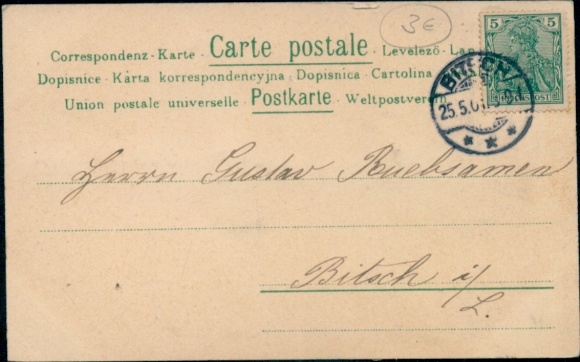 3€
5 5
Correspondenz-Karte · Carte postale · Levelező-La
Dopisnice · Karta korrespondencyjna · Dopisnica · Cartolina
Union postale universelle · Postkarte · Weltpostverein
REICHSPOST
BITSCH
25.5.01
Herrn Gustav Ruebsamen
Bitsch i/
L.